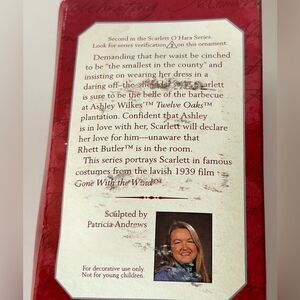 Second in the Scarlett O'Hara Series
Look for series verification on this ornament.
Demanding that her waist be cinched
to be "the smallest in the county" and
insisting on wearing her dress in a
daring off-the-shoulder Scarlett
is sure to be the belle of the barbecue
at Ashley Wilkes'™ Twelve Oaks™
plantation. Confident that Ashley
is in love with her, Scarlett will declare
her love for him—unaware that
Rhett Butler™ is in the room.
This series portrays Scarlett in famous
costumes from the lavish 1939 film
Gone With the Wind™.
Sculpted by
Patricia Andrews
For decorative use only.
Not for young children.